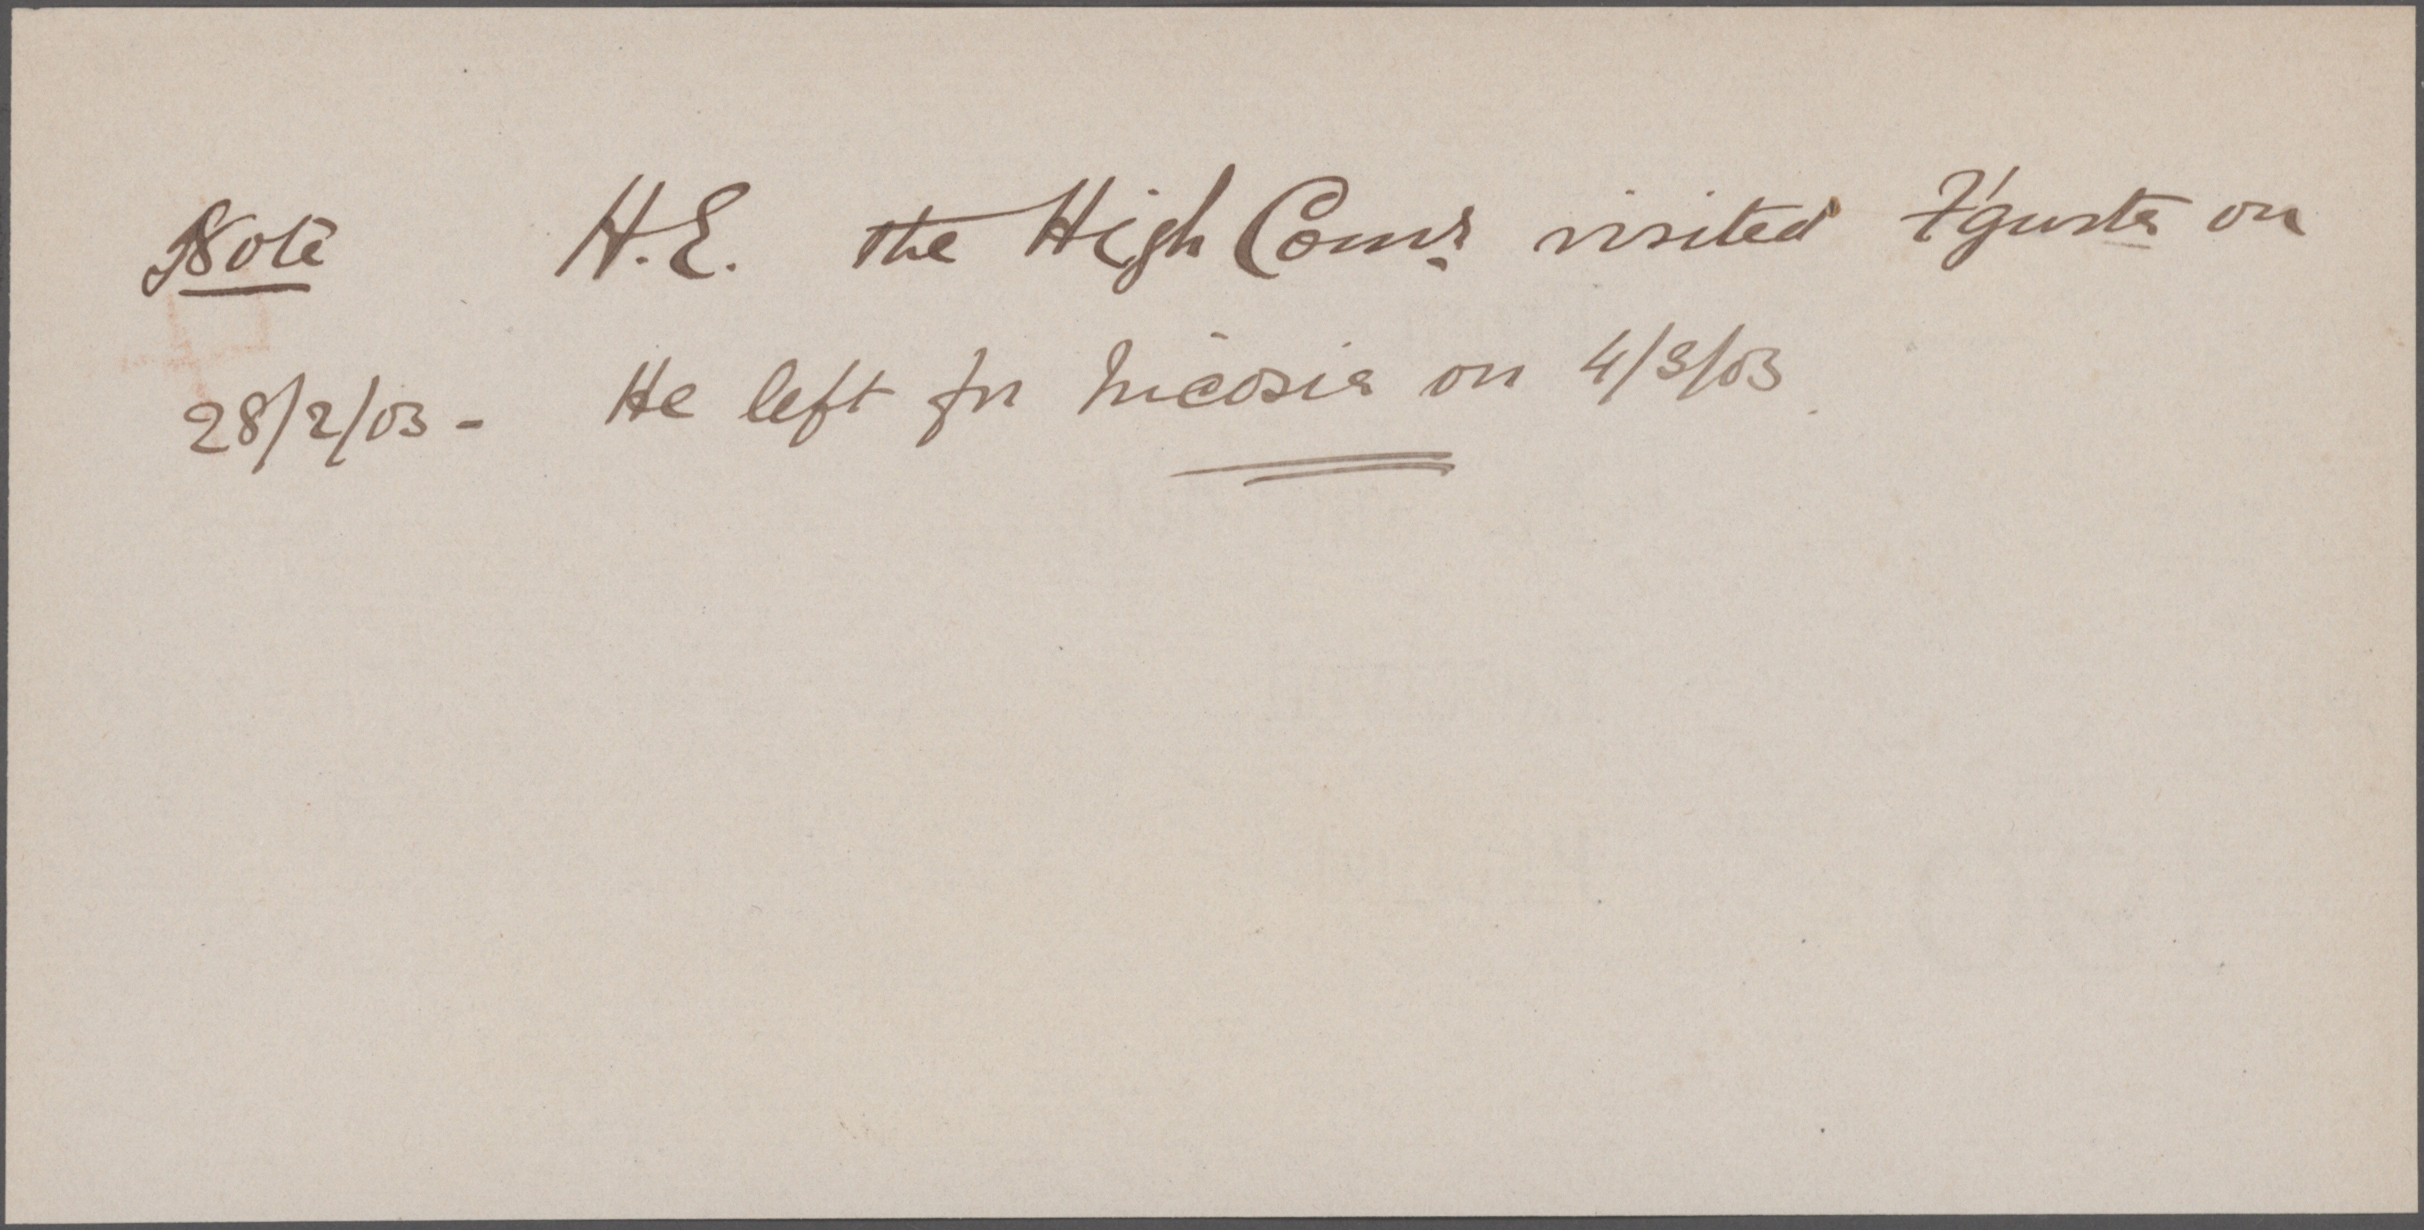 Note H.E. the High Comr. visited F'gusta on
28/2/03 - He left for Nicosia on 4/3/03